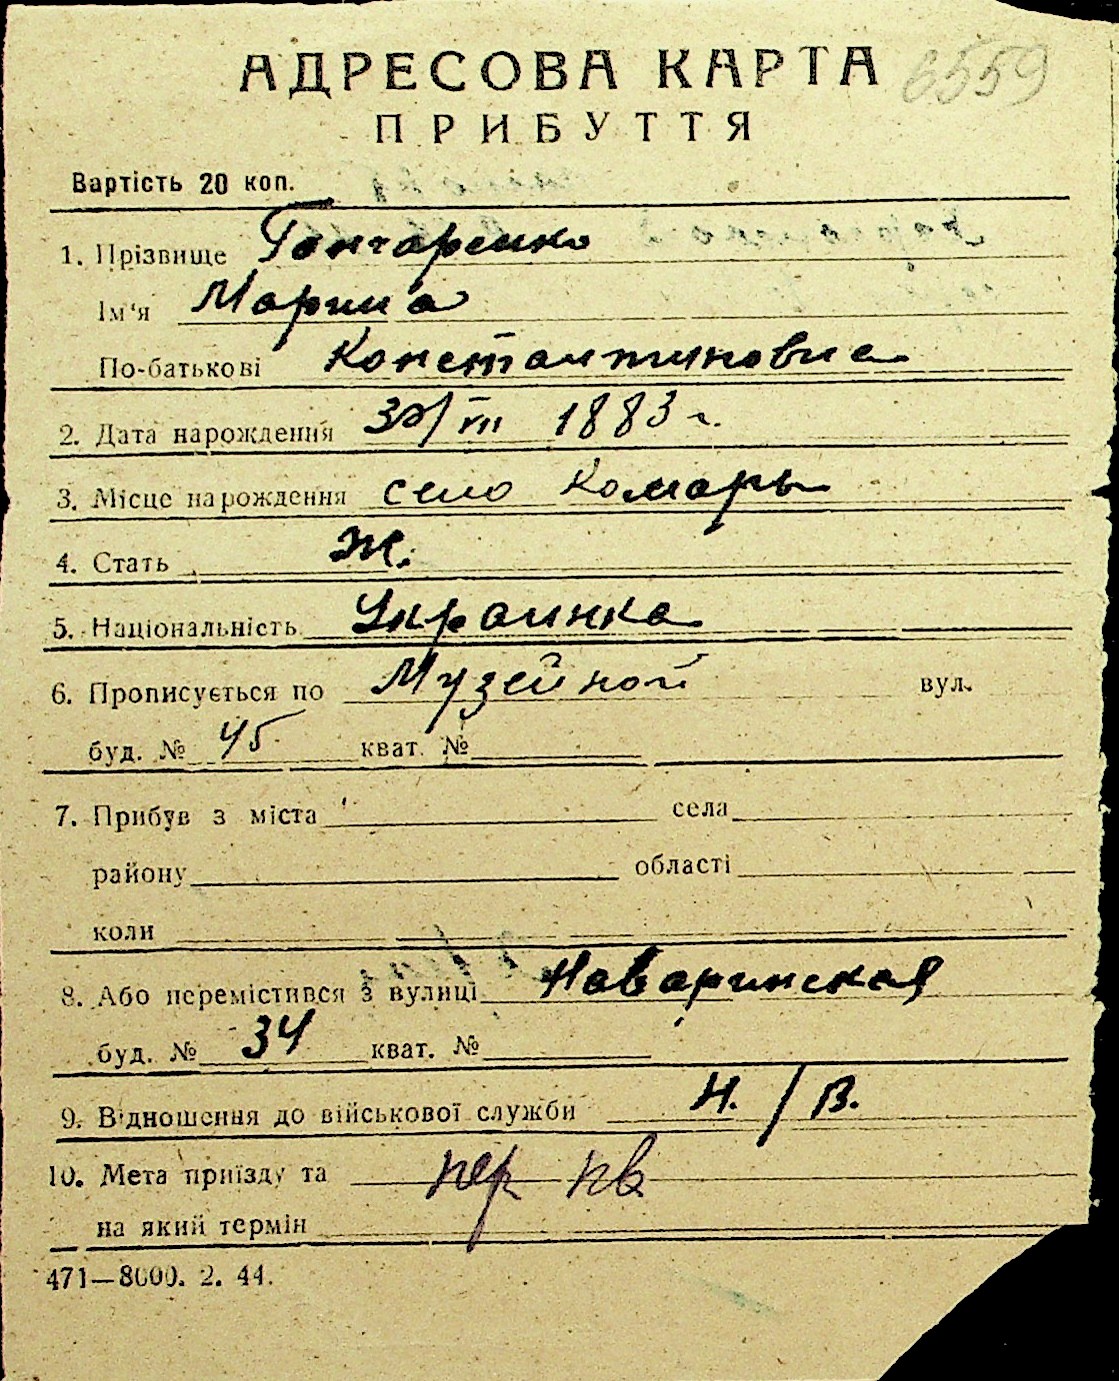 АДРЕСОВА КАРТА 6559
ПРИБУТТЯ
Вартість 20 коп.
1. Прізвище Гончаренко
Ім'я Марина
По-батькові Константиновна
2. Дата нарождення 30/VII 1883 г.
3. Місце нарождення село Комарь
4. Стать Ж.
5. Національність Украинка
6. Прописується по Музейной вул.
буд. № 45 кват. №
7. Прибув з міста села
району області
коли
8. Або перемістився з вулиці Наваринская
буд. № 34 кват. №
9. Відношення до військової служби Н./В.
10. Мета приїзду та пер кв
на який термін
471—8000. 2. 44.